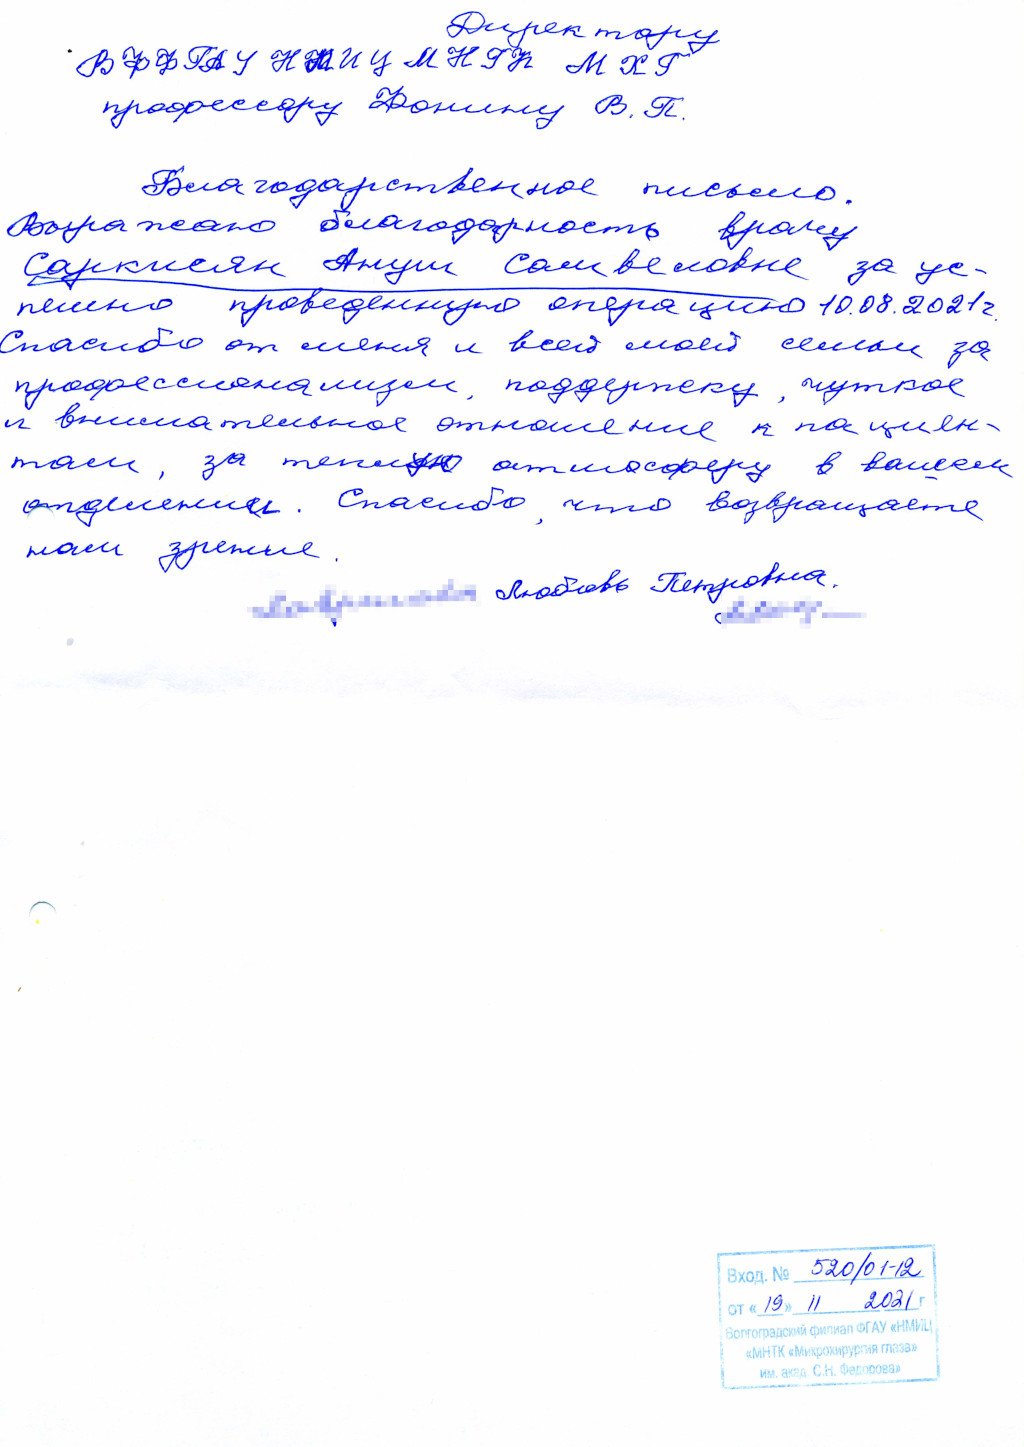 Директору
ВФ ФГАУ НМИЦ МНТК МХГ
профессору Фокину В.П.
Благодарственное письмо.
Выражаю благодарность врачу
Саркисян Ануш Самвеловне за ус-
пешно проведенную операцию 10.08.2021г.
Спасибо от меня и всей моей семьи за
профессионализм, поддержку, чуткое
и внимательное отношение к пациен-
там, за теплую атмосферу в вашем
отделении. Спасибо, что возвращаете
нам зрение.
Любовь Петровна.
Вход. № 520/01-12
от «19» 11 2021 г
Волгоградский филиал ФГАУ «НМИЦ
«МНТК «Микрохирургия глаза»
им. акад. С.Н. Федорова»